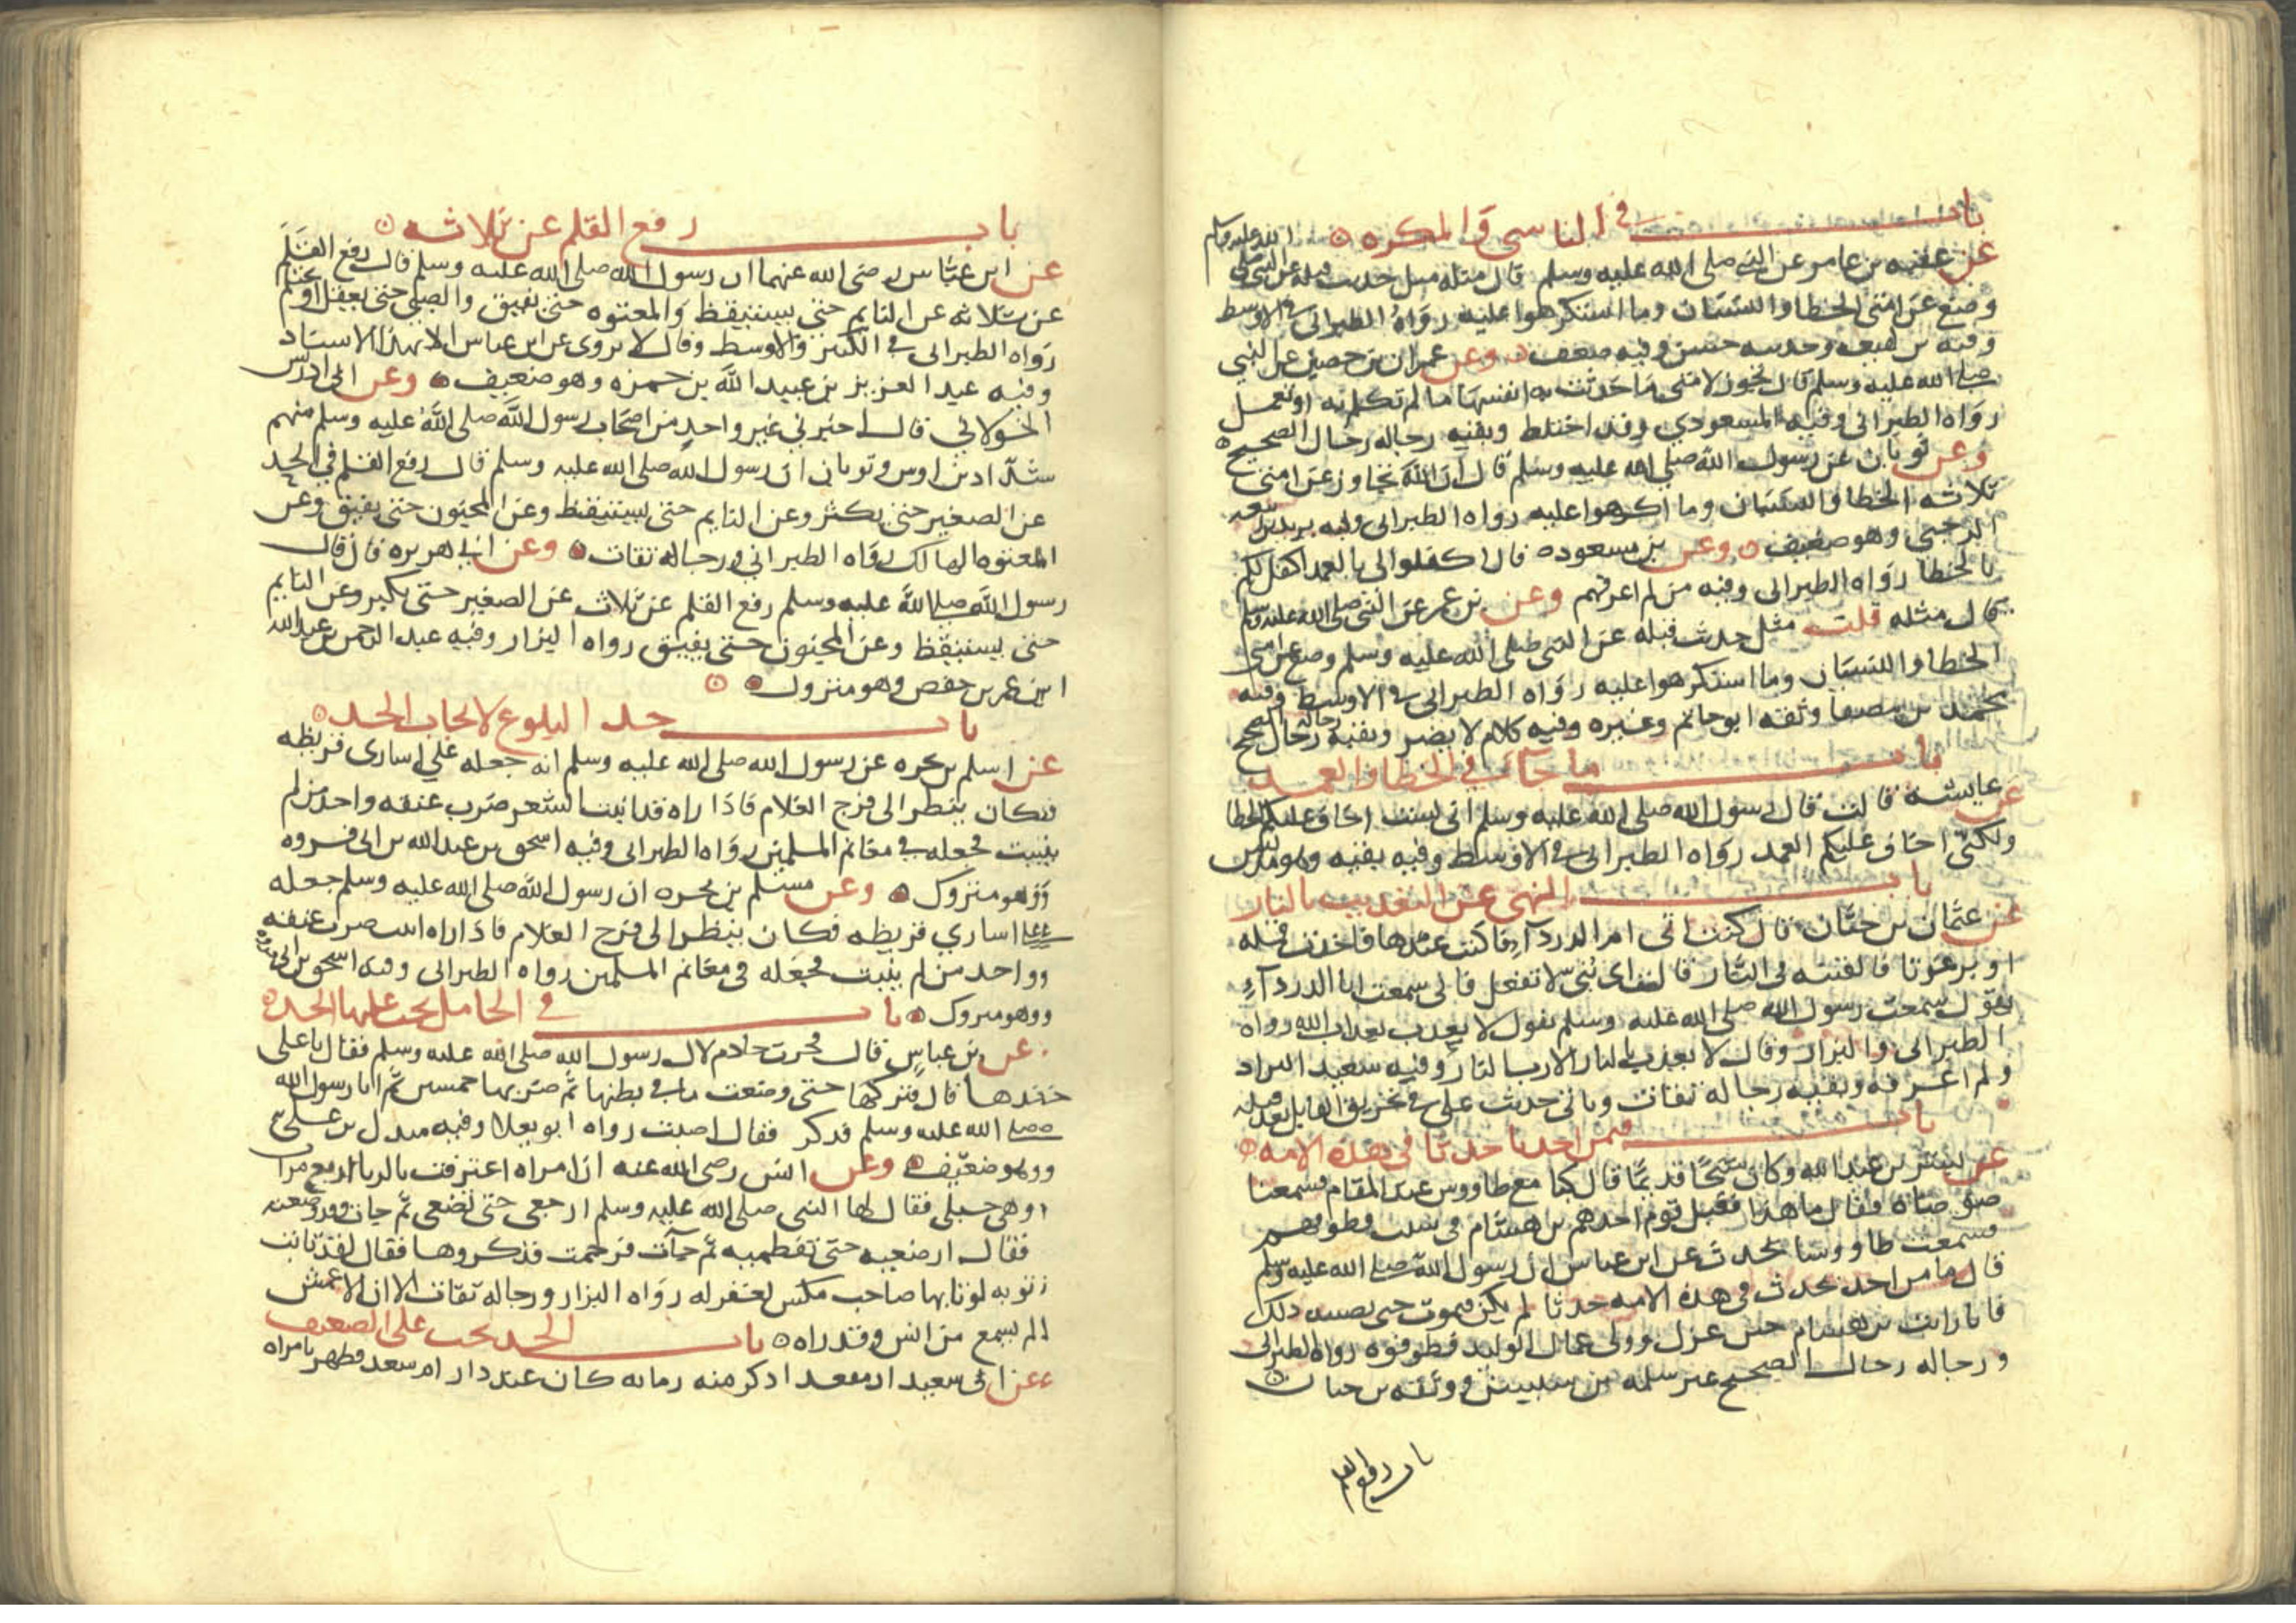 باب في الناسي والمكره
عن عقبه بن عامر عن النبي صلى الله عليه وسلم قال مثله مثل حديث قبله عن النبي صلى الله عليه وسلم
وضع عن امتي الخطا والنسيان وما استكرهوا عليه رواه الطبراني في الاوسط
وفيه بن لهيعه وحديثه حسن وفيه ضعف وعن عمران بن حصين عن النبي
صلى الله عليه وسلم قال تجوز لامتي ما حدثت به انفسها ما لم تكلم به او تعمل
رواه الطبراني وفيه المسعودي وقد اختلط وبقيه رجاله رجال الصحيح
وعن ثوبان عن رسول الله صلى الله عليه وسلم قال ان الله تجاوز عن امتي
ثلاثه الخطا والنسيان وما اكرهوا عليه رواه الطبراني وفيه يزيد بن ربيعه
الرحبي وهو ضعيف وعن بن مسعود قال اكفلوا لي بالعمد اكفل لكم
بالخطا رواه الطبراني وفيه من لم اعرفهم وعن بن عمر عن النبي صلى الله عليه وسلم
قال مثله قلت مثل حديث قبله عن النبي صلى الله عليه وسلم وضع عن امتي
الخطا والنسيان وما استكرهوا عليه رواه الطبراني في الاوسط وفيه
محمد بن مصفا وثقه ابو حاتم وغيره وفيه كلام لا يضر وبقيه رجاله رجال الصحيح
باب ما جآء في الخطا والعمد
عن عايشه قالت قال رسول الله صلى الله عليه وسلم اني لست اخاف عليكم الخطا
ولكني اخاف عليكم العمد رواه الطبراني في الاوسط وفيه بقيه وهو مدلس
باب النهي عن التعذيب بالنار
عن عثمان بن حيان قال كنت اتى ام الدردآء فاكتب عندها فاخذت قمله
او برغوثا فالقيته في النار فقالت اي بني لا تفعل فاني سمعت ابا الدردآء
يقول سمعت رسول الله صلى الله عليه وسلم يقول لا يعذب بعذاب الله رواه
الطبراني والبزار وقال لا يعذب بالنار الا رب النار وفيه سعيد البراد
ولم اعرفه وبقيه رجاله ثقات وياتي حديث علي في تحريق القايل بعد قتله
باب فيمن احدث حدثا في هذه الامه
عن بشر بن عبيد الله وكان شيخا قديما قال كنا مع طاووس عند المقام فسمعنا
ضوضاه فقال ما هذا فقيل قوم اخذهم بن هشام في سبب فطوفهم
فسمعت طاووسا يحدث عن ابن عباس ان رسول الله صلى الله عليه وسلم
قال ما من احد يحدث في هذه الامه حدثا لم يكن فيموت حتى يصيبه ذلك
فانا رايت بن هشام حين عزل وولي عمال الوليد فطوفوه رواه الطبراني
ورجاله رجال الصحيح غير سلمه بن شبيب ووثقه بن حبان
باب رفع القلم
باب رفع القلم عن ثلاثه
عن ابن عباس رضي الله عنهما ان رسول الله صلى الله عليه وسلم قال رفع القلم
عن ثلاثه عن النايم حتى يستيقظ والمعتوه حتى يفيق والصبي حتى يعقل او يحتلم
رواه الطبراني في الكبير والاوسط وقال لا يروى عن ابن عباس الا بهذا الاسناد
وفيه عبد العزيز بن عبيد الله بن حمزه وهو ضعيف وعن ابي ادريس
الخولاني قال اخبرني غير واحد من اصحاب رسول الله صلى الله عليه وسلم منهم
شداد بن اوس وثوبان ان رسول الله صلى الله عليه وسلم قال رفع القلم في الحد
عن الصغير حتى يكبر وعن النايم حتى يستيقظ وعن المجنون حتى يفيق وعن
المعتوه الهالك رواه الطبراني ورجاله ثقات وعن ابي هريره قال قال
رسول الله صلى الله عليه وسلم رفع القلم عن ثلاث عن الصغير حتى يكبر وعن النايم
حتى يستيقظ وعن المجنون حتى يفيق رواه البزار وفيه عبد الرحمن بن عبد الله
ابن عمر بن حفص وهو متروك
باب حد البلوغ لايجاب الحد
عن اسلم بن بحره عن رسول الله صلى الله عليه وسلم انه جعله علي اسارى قريظه
فكان ينظر الى فرج الغلام فاذا راه قد انبت الشعر ضرب عنقه واخذ من لم
ينبت فجعله في مغانم المسلمين رواه الطبراني وفيه اسحق بن عبد الله بن ابي فروه
وهو متروك وعن مسلم بن بحره ان رسول الله صلى الله عليه وسلم جعله
على اساري قريظه فكان ينظر الى فرج الغلام فاذا راه انبت ضرب عنقه
وواخد من لم ينبت فجعله في مغانم المسلمين رواه الطبراني وفيه اسحق بن ابي فروه
وهو متروك باب في الحامل يجب عليها الحد
عن بن عباس قال فجرت خادم لال رسول الله صلى الله عليه وسلم فقال يا علي
حدها قال فتركها حتى وضعت ما في بطنها ثم ضربها خمسين ثم اتا رسول الله
صلى الله عليه وسلم فذكر فقال اصبت رواه ابو يعلا وفيه مندل بن علي
وهو ضعيف وعن انس رضي الله عنه ان امراه اعترفت بالزنا اربع مرات
وهي حبلى فقال لها النبي صلى الله عليه وسلم ارجعي حتى تضعي ثم جات وقد وضعته
فقال ارضعيه حتى تفطميه ثم جآت فرجمت فذكروها فقال لقد تابت
توبه لو تابها صاحب مكس لغفر له رواه البزار ورجاله ثقات الا ان الاعمش
لم يسمع من انس وقد راه باب الحد يجب على الضعيف
عن ابي سعيد ان مقعدا ذكر منه زمانه كان عند دار ام سعد فظهر بامراه